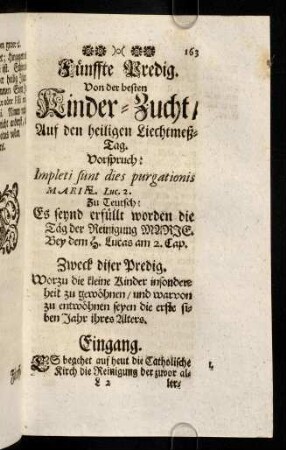 163
Fünffte Predig.
Von der besten
Kinder-Zucht/
Auf den heiligen Liechtmeß-
Tag.
Vorspruch:
Impleti sunt dies purgationis
MARIÆ. Luc. 2.
Zu Teutsch:
Es seynd erfüllt worden die
Täg der Reinigung MARIE.
Bey dem H. Lucas am 2. Cap.
Zweck diser Predig.
Worzu die kleine Kinder insonder-
heit zu gewöhnen/ und warvon
zu entwöhnen seyen die erste si-
ben Jahr ihres Alters.
Eingang.
ES begehet auf heut die Catholische
Kirch die Reinigung der zuvor al-
L 2 ler-
1.